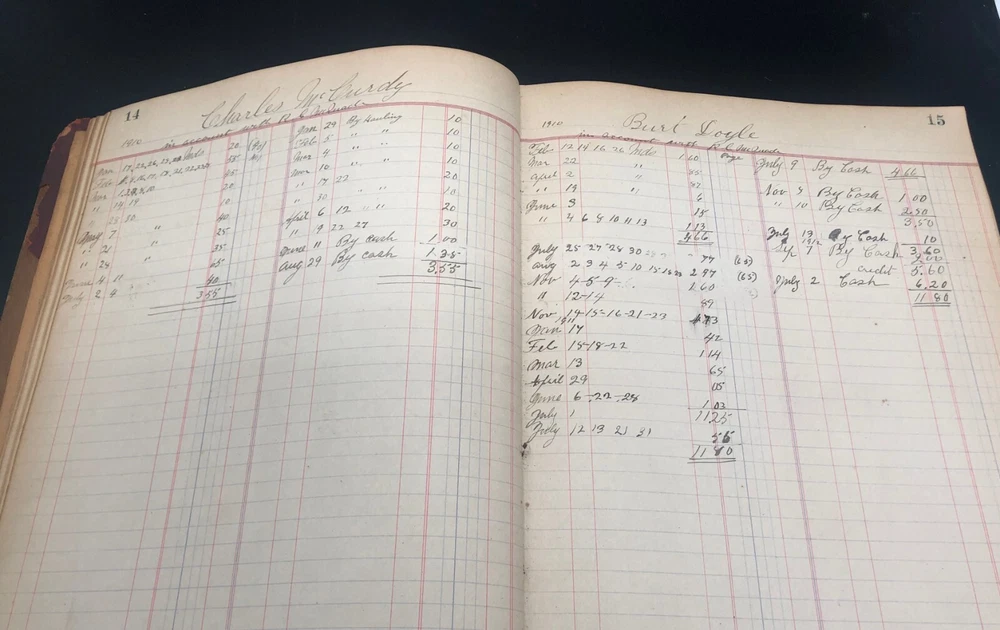 14
Charles McCurdy
1910 in account with R. C.
Jan 17, 23, 26, 27, 28 Mds 20
Feb 25
10
" 14 19 20
25 30 40
May 7 " 25
" 21 " 35
" 28 " 65
June 4 11 40
July 2 9 3.55
Jan 29 By Hauling 10
Feb 5 " " 10
Mar 4 " " 10
Mar 10 " " 10
" 17 22 20
" 30 " " 10
April 6 12 " " 20
" 9 22 27 30
June 11 By cash 1.00
Aug 29 By cash 1.35
3.55
15
Burt Doyle
1910 in account with R. C.
Feb 12 14 16 26 Mds 1.60
Mar 22 " 35
April 2 "
" 13 6
June 3 15
" 4 6 8 10 11 13 1.13
4.66
July 25-27-28 30 77 (65)
Aug 2 3 4 5 10 15 2.97 (65)
Nov 4-5-9 1.60
" 12-14 89
Nov 14-15-16-21-23 73
1911
Jan 17 42
Feb 15-18-22 1 14
Mar 13 65
April 29 05
June 6-22-28 1 03
July 1 11 25
July 12 13 21 31 55
11 80
July 9 By Cash 4.66
Nov 4 By Cash 1 00
" 10 By Cash 2.50
3,50
July 19 By Cash 10
1912 3,60
7 By Cash 2.00
credit 5.60
July 2 Cash 6.20
11 80